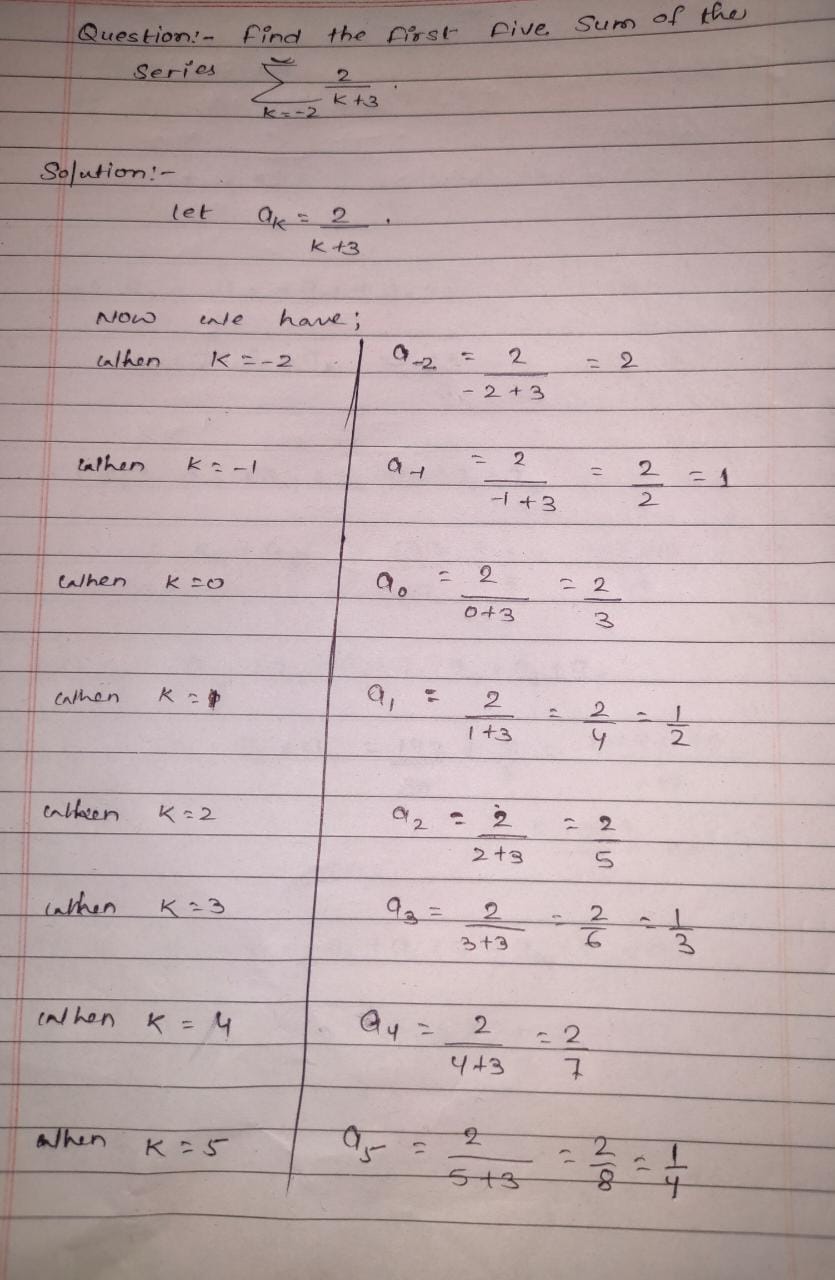 Question:- Find the first five sum of the
Series ∑ k=-2 2/k+3 .
Solution:-
let ak = 2/k+3 .
Now we have;
when k=-2 a-2 = 2/-2+3 = 2
when k=-1 a-1 = 2/-1+3 = 2/2 = 1
when k=0 a0 = 2/0+3 = 2/3
when k=1 a1 = 2/1+3 = 2/4 = 1/2
when k=2 a2 = 2/2+3 = 2/5
when k=3 a3 = 2/3+3 = 2/6 = 1/3
when k=4 a4 = 2/4+3 = 2/7
when k=5 a5 = 2/5+3 = 2/8 = 1/4